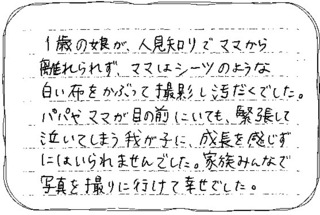 1歳の娘が、人見知りでママから
離れられず、ママはシーツのような
白い布をかぶって撮影し汚だくでした。
パパやママが目の前にいても、緊張して
泣いてしまう我が子に、成長を感じず
にはいられませんでした。家族みんなで
写真を撮りに行けて幸せでした。